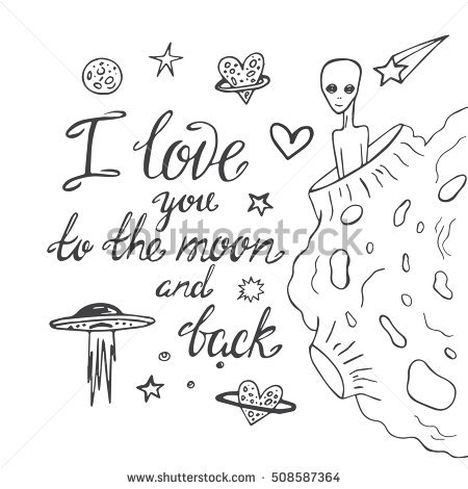 I love
you
to the moon
and
back
shutterstock
www.shutterstock.com · 508587364